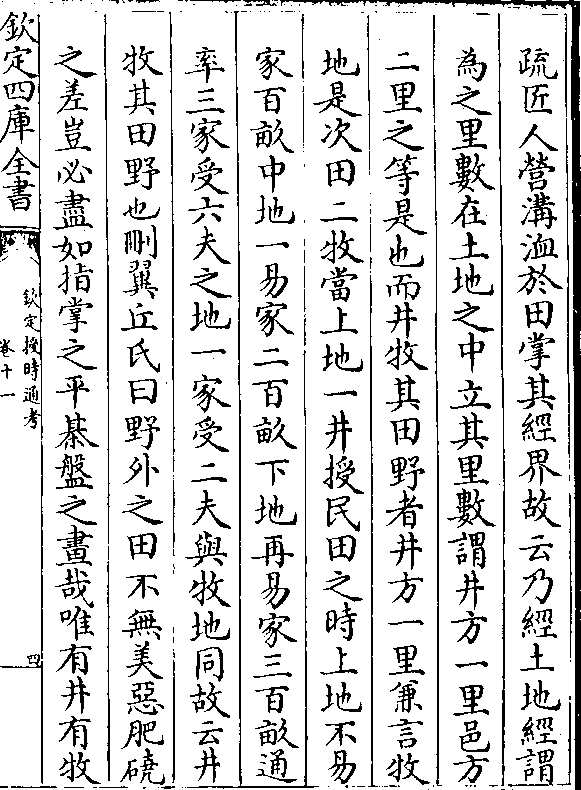 疏匠人營溝洫於田掌其經界故云乃經土地經謂
為之里數在土地之中立其里數謂井方一里邑方
二里之等是也而井牧其田野者井方一里兼言牧
地是次田二牧當上地一井授民田之時上地不易
家百畝中地一易家二百畝下地再易家三百畝通
率三家受六夫之地一家受二夫與牧地同故云井
牧其田野也刪翼丘氏曰野外之田不無美惡肥磽
之差豈必盡如指掌之平棊盤之畫哉唯有井有牧
欽定四庫全書
欽定授時通考
卷十一
四